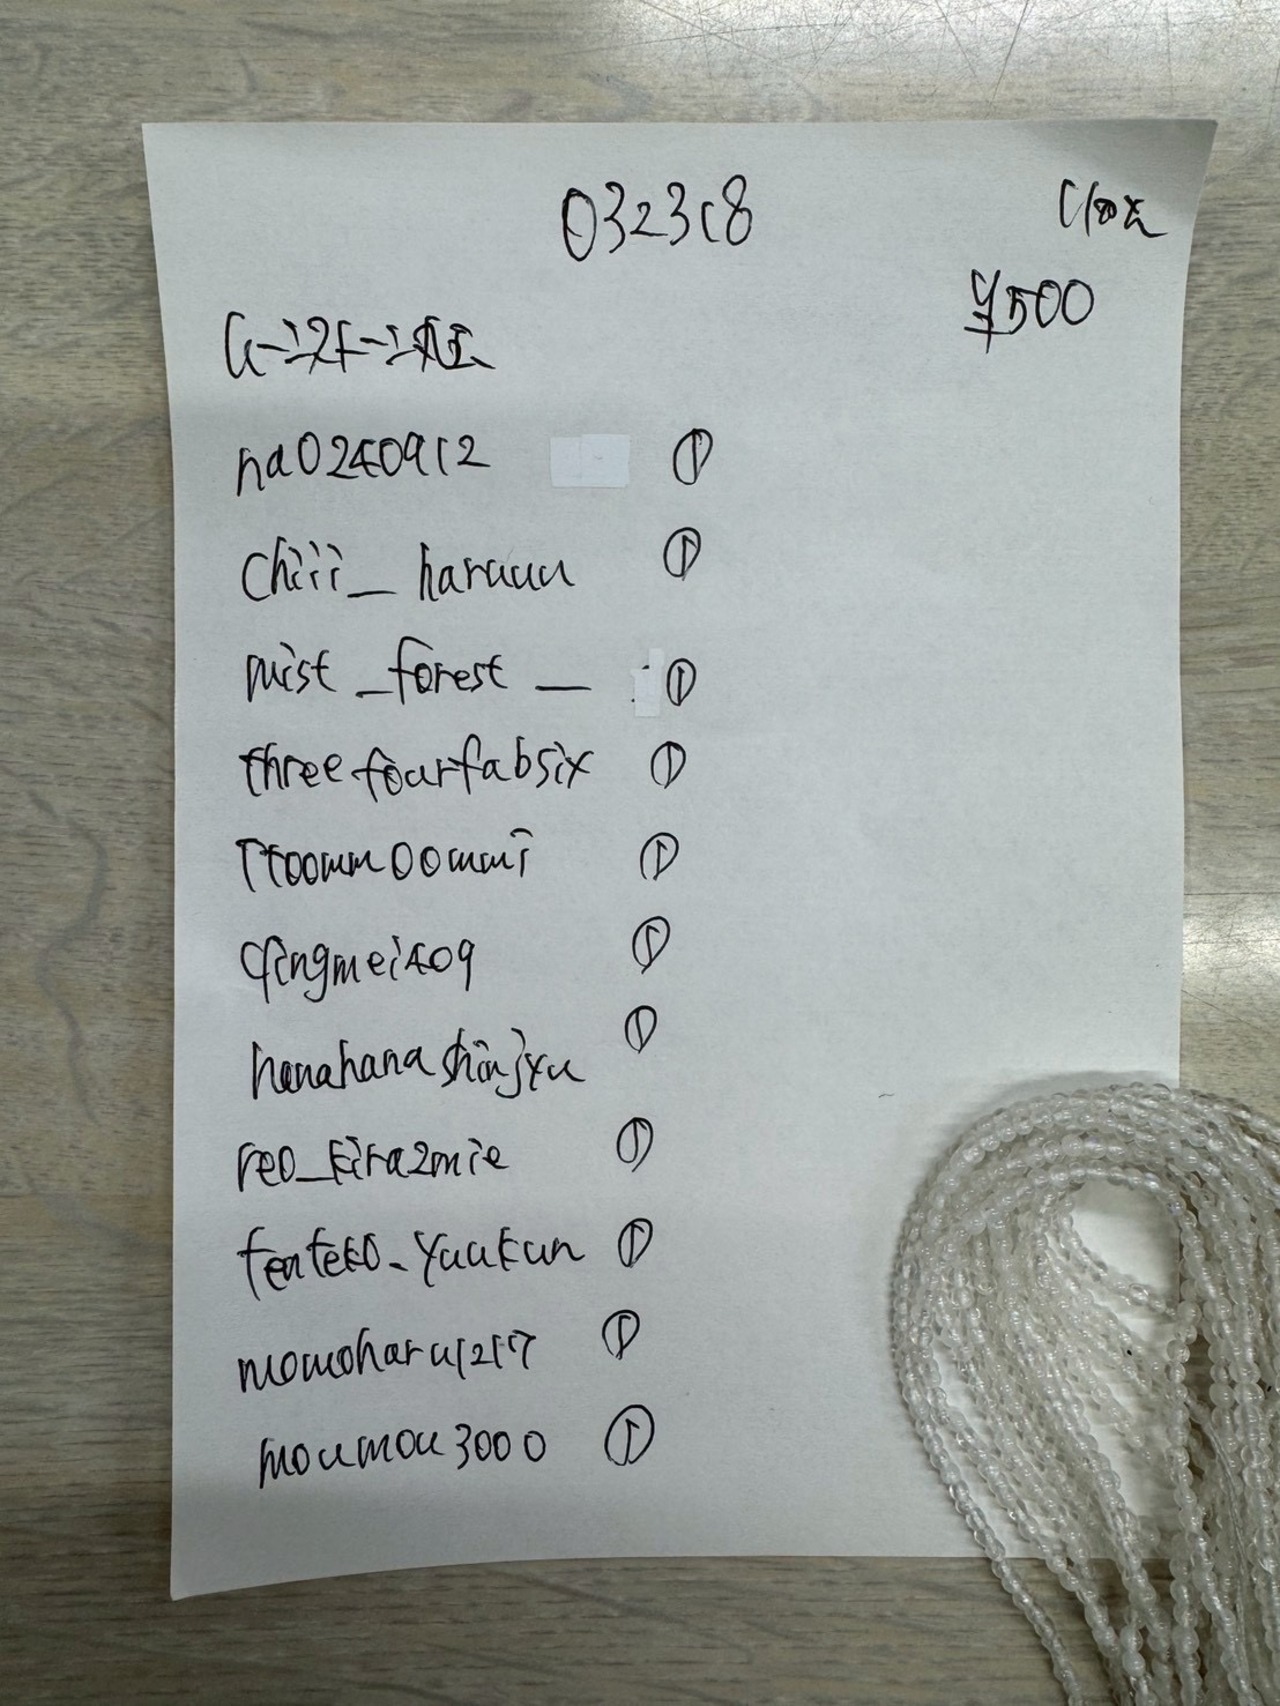 0323c8
¥500
na0240912 ①
chiii_haruuu ①
mist_forest_ ①
threefourfabsix ①
ttoomm00mmi ①
qingmei409 ①
hanahanashinjyu ①
reo_kira2mie ①
tenteko_yuukun ①
momoharu1217 ①
moumou3000 ①